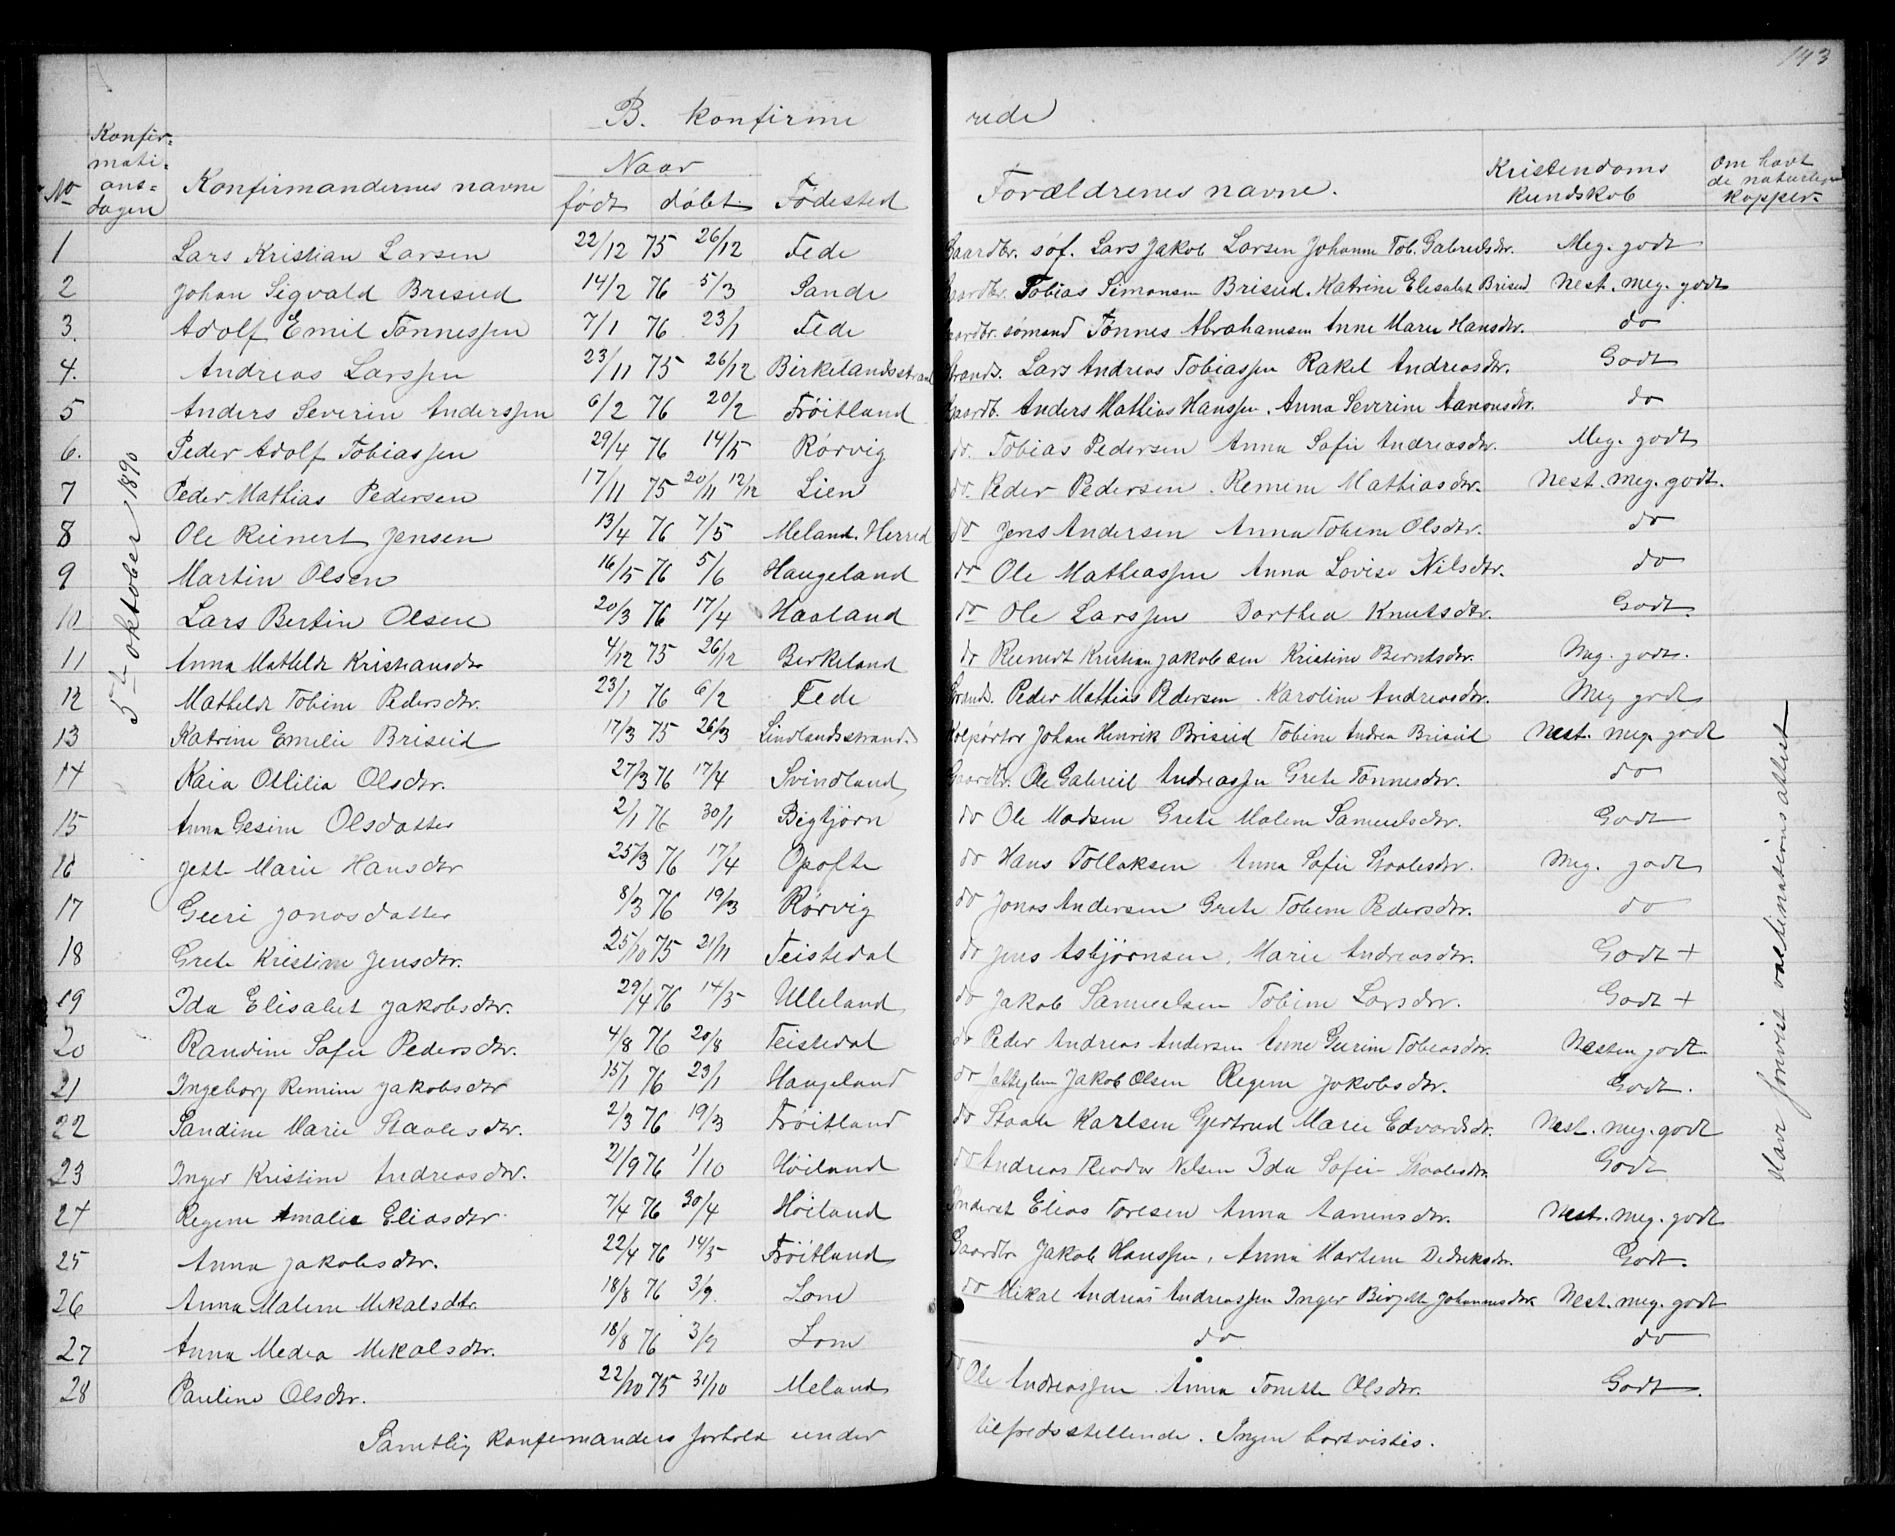 143
B. konfirme rede
No
Konfir= mati= ons= dagen
Konfirmandernes navne
Naar
født
døbt
Fødested
Forældrenes navne.
Kristendoms kundskab
Om havt de naturlige kopper
5te oktober 1890
1 Lars Kristian Larsen 22/12 75 26/12 Fede Gaardbr. søf. Lars Jakob Larsen Johanne Tob. Gabrielsdtr. Meg. godt
2 Johan Sigvald Briseid 14/2 76 5/3 Sande Gaardbr. Tobias Simonsen Briseid. Katrine Elisabet Briseid Nest. meg. godt
3. Adolf Emil Tønnessen 7/1 76 23/1 Fede Gaardbr. sømand Tønnes Abrahamsen Anne Marie Hansdtr. do
4. Andreas Larssen 23/11 75 26/12 Birkelandsstrand Strands. Lars Andreas Tobiassen Rakel Andreasdtr. Godt
5 Anders Severin Anderssen 6/2 76 20/2 Frøitland Gaardb. Anders Mathias Hanssen. Anna Severine Aanonsdtr. do
6. Peder Adolf Tobiassen 29/4 76 14/5 Rørvig do. Tobias Pedersen Anna Sofie Andreasdtr. Meg. godt
7 Peder Mathias Pedersen 17/11 75 20/11 12/12 Lien do. Peder Pedersen. Remine Mathiasdtr. Nest. meg. godt.
8 Ole Reinert Jensen 13/4 76 7/5 Meland. Herred do Jens Andersen Anna Tobine Olsdtr. do
9 Martin Olsen 16/5 76 5/6 Haugeland do Ole Mathiassen Anna Lovise Nilsdtr. do
10 Lars Bertin Olsen 20/3 76 17/4 Haaland do Ole Larssen Dorthea Knutsdtr. Godt.
11 Anna Mathilde Kristiansdtr 4/12 75 26/12 Berkeland do Reinert Kristian Jakobsen Kristine Berntsdtr. Meg. godt.
12 Mathilde Tobine Pedersdtr. 23/1 76 6/2 Fede Strands. Peder Mathias Pedersen. Karoline Andreasdtr. Meg godt
13 Katrine Emelie Briseid 17/3 75 26/3 Lindlandsstrand. Kolportør Johan Henrik Briseid Tobine Andrea Briseid Nest. meg. godt
14 Kaia Otilia Olsdtr. 27/3 76 17/4 Svindland Gaardbr. Ole Gabriel Andreassen Grete Tønnesdtr. do
15 Anna Gesine Olsdatter 2/1 76 30/1 Bigtjørn do Ole Madsen Grete Malene Samuelsdtr. Godt
16 Jette Marie Hansdtr 25/3 76 17/4 Opofte do Hans Tollaksen Anna Sofie Staalesdtr. Meg. godt
17 Geeri Jonasdatter 8/3 76 19/3 Rørvig do Jonas Andersen Grete Tobine Pedersdtr. do
18 Grete Kristine Jensdtr. 25/10 75 21/11 Teistedal do Jens Asbjørnsen, Marie Andreasdtr. Godt +
19 Ida Elisabet Jakobsdtr. 29/4 76 14/5 Ulleland do Jakob Samuelsen Tobine Larsdtr. Godt +
20 Randine Sofie Pedersdtr. 4/8 76 20/8 Teistedal do Peder Andreas Andersen Anne Geerine Tobiasdtr. Nesten godt
21 Ingeborg Remine Jakobsdtr 15/1 76 23/1 Haugeland do Jakob Olsen Regine Jakobsdtr. Godt.
22 Sandine Marie Staalesdtr. 2/3 76 19/3 Frøitland do Staale Karlsen Gjertrud Marie Edvardsdtr. Nest. meg. godt
23 Inger Kristine Andreasdtr. 21/9 76 1/10 Høiland do Andreas Teodor Nilsen Ida Sofie Staalesdtr. Godt
24 Regine Amalie Eliasdtr. 7/4 76 30/4 Høiland Inderst Elias Toresen Anna Aanensdtr. Nest. meg. godt
25 Anna Jakobsdtr. 22/4 76 14/5 Frøitland Gaardbr Jakob Hanssen, Anna Martine Dideriksdtr. Godt.
26 Anna Malene Mikalsdtr. 18/8 76 3/9. Lone do Mikal Andreas Andreassen Inger Birgitte Johannesdtr. Nest. meg. godt
27 Anna Medea Mikalsdtr. 18/8 76 3/9 Lone do do
28 Pauline Olsdtr. 22/10 75 31/10 Meland do Ole Andreassen Anna Tonette Olsdtr. Godt.
Samtlig konfirmanders forhold under tilfredsstillende. Ingen bortvistes.
Har forevist vaccinationsattest